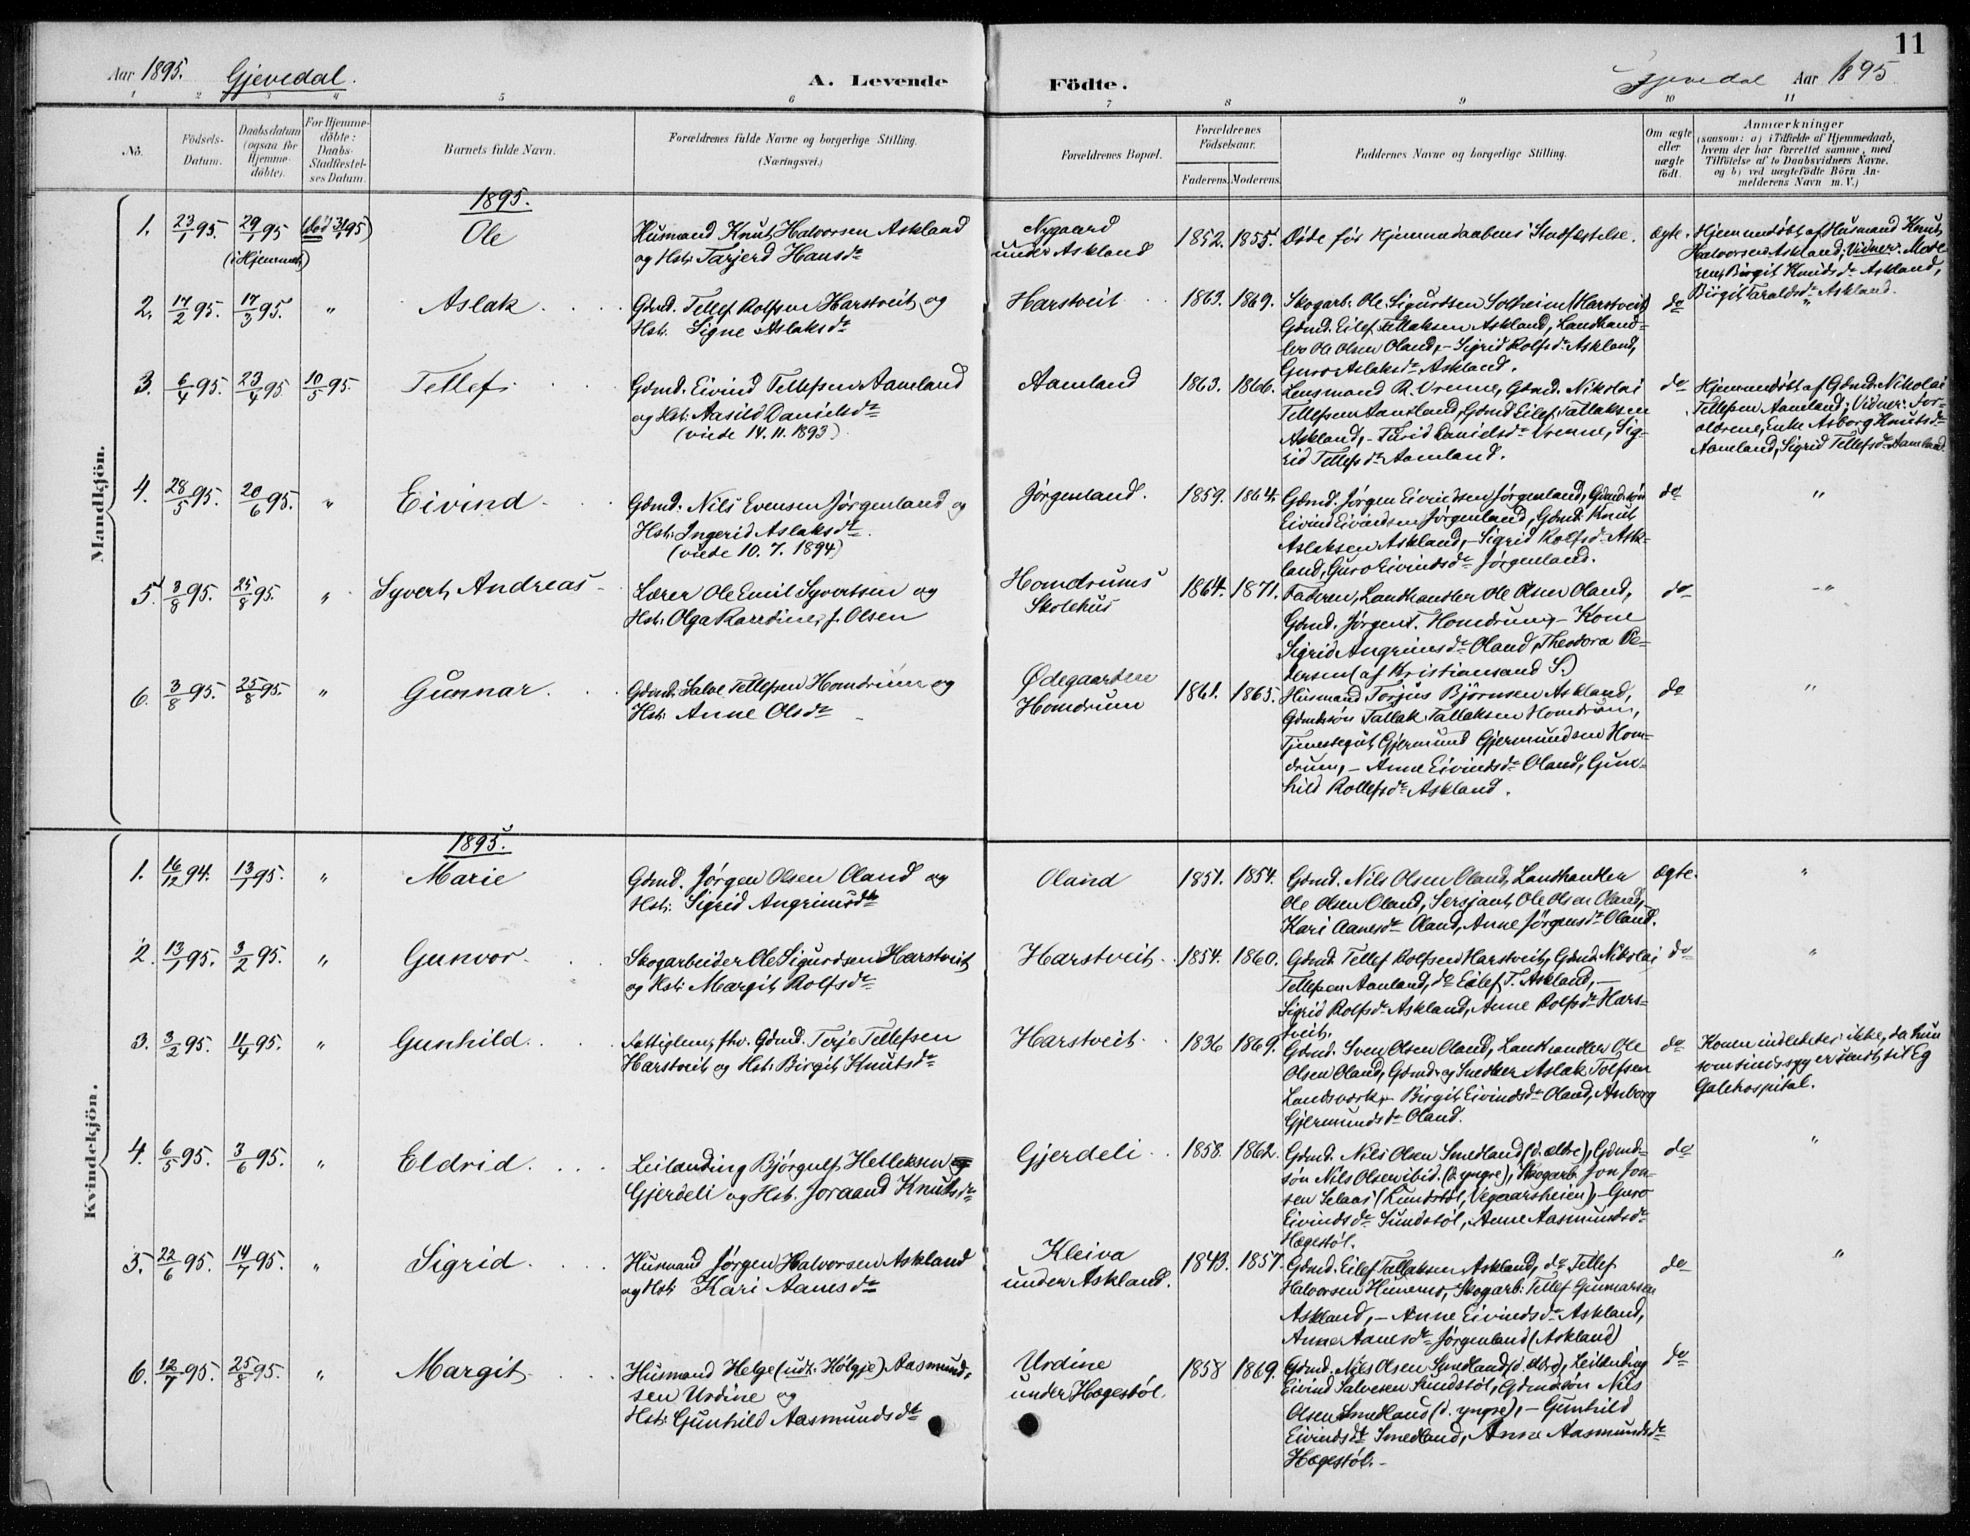 11
Aar 1895. Gjevedal. A. Levende Födte. Gjevedal Aar 1895
1 2 3 4 5 6 7 8 9 10 11
No.
Födsels-Datum.
Daabsdatum (ogsaa for Hjemme-döbte).
For Hjemme-döbte: Daabs-Stadfæstel-ses Datum.
Barnets fulde Navn.
Forældrenes fulde Navne og borgerlige Stilling. (Næringsvei.)
Forældrenes Bopæl.
Forældrenes Födselsaar.
Faderens. Moderens.
Faddernes Navne og borgerlige Stilling.
Om ægte eller uægte födt.
Anmærkninger
(saasom: a) i Tilfælde af Hjemmedaab,
hvem der har forrettet samme, med
Tilföielse af to Daabsvidners Navne.
og b) ved uægtefödte Börn An-
melderens Navn m. V.)
Mandkjön.
1895.
1. 23/1 95. 29/1 95 (i Hjemmet) (død 31/1 95) Ole
Husmand Knut Halvorsen Askland
og Hst: Tarjerd Hansdr
Nygaard
under Askland
1852. 1855.
Døde før Hjemmedaabens Stadfæstelse.
ægte.
Hjemmedøbt af Husmand Knut
Halvorsen Askland; Vidner: Mode-
ren, Birgit Knudsdr Askland,
Birgit Taraldsdr Askland.
2. 17/2 95. 17/3 95. " Aslak
Gdmd. Tellef Rolfsen Harstveit og
Hst: Signe Aslaksdr
Harstveit
1863. 1869.
Skogarb. Ole Sigurdsen Solheim (Harstveit)
Gdmd. Eilef Tallaksen Askland, Landhand-
ler Ole Olsen Oland, – Sigrid Rolfsdr Askland,
Guro Aslaksdr Askland.
do
3. 6/4 95. 23/4 95 10/5 95 Tellef
Gdmd. Eivind Tellefsen Aamland
og Hst: Aasild Danielsdr
(viede 14.11.1893)
Aamland
1863. 1866.
Lensmand R. Vrenne, Gdmd. Nikolai
Tellefsen Aamland, Gdmd Eilef Tallaksen
Askland, – Turid Danielsdr Vrenne, Sig-
rid Tellefsdr Aamland.
do
Hjemmedøbt af Gdmd. Nikolai
Tellefsen Aamland; Vidner: For-
ældrene, Enke Asborg Knutsdr
Aamland, Sigrid Tellefsdr Aamland
4. 28/5 95. 20/6 95. " Eivind
Gdmd. Nils Evensen Jørgenland og
Hst: Ingerid Aslaksdr.
(viede 10.7.1894)
Jørgenland.
1859. 1864.
Gdmd. Jørgen Eivindsen Jørgenland, Gdmdsøn
Eivind Eivindsen Jørgenland, Gdmd. Knut
Aslaksen Askland, – Sigrid Rolfsdr Ask-
land, Guro Eivindsdr Jørgenland.
do "
5. 3/8 95. 25/8 95. " Syvert Andreas
Lærer Ole Emil Syvertsen og
Hst: Olga f. Olsen
Homdrums
Skolehus
1864. 1871.
Faderen, Landhandler Ole Olsen Oland,
Gdmd. Jørgen T. Homdrum, – Kone
Sigrid Angrimsdr Oland, Theodora Pe-
dersen (af Kristiansand S.)
do – "
6. 3/8 95. 25/8 95. " Gunnar
Gdmd. Salve Tellefsen Homdrum og
Hst: Anne Olsdr
Ødegaarden
Homdrum
1861. 1865.
Husmand Torjus Bjørnsen Askland,
Gdmdsøn Tallak Tallaksen Homdrum,
Tjenestegut Gjermund Gjermundsen Hom-
drum, – Anne Eivindsdr Oland, Gun-
hild Rollefsdr Askland.
do "
Kvindekjön.
1895.
1. 16/12 94. 13/1 95. " Marie
Gdmd. Jørgen Olsen Oland og
Hst: Sigrid Angrimsdtr
Oland
1851. 1854.
Gdmd. Nils Olsen Oland, Landhandler
Ole Olsen Oland, Sersjant Ole Olsen Oland,
Kari Aanesdr Oland, Anne Jørgensdr Oland.
ægte. "
2. 13/1 95. 3/2 95. " Gunvor
Skogarbeider Ole Sigurdsen Harstveit
og Hst: Margit Rolfsdr
Harstveit.
1854. 1860.
Gdmd. Tellef Rolfsen Harstveit, Gdmd. Nikolai
Tellefsen Aamland, do Eilef T. Askland, –
Sigrid Rolfsdr Askland, Anne Rolfsdr Harst-
veit.
do "
3. 3/2 95. 11/4 95. " Gunhild
Fattiglem, fhv. Gdmd. Terje Tellefsen
Harstveit og Hst: Birgit Knutsdr
Harstveit
1836 1869.
Gdmd. Sven Olsen Oland, Landhandler Ole
Olsen Oland, Gdmd. og Snedker Aslak Tolfsen
Landsverk, – Birgit Eivindsdr Oland, Anborg
Gjermundsdr Oland.
do
Konen indlededes ikke, da hun
som sindssyg er sendt til Eg
Galehospital.
4. 6/5 95. 3/6 95. " Eldrid
Leilending Bjørgulf Helleksen
Gjerdeli og Hst. Joraand Knutsdr
Gjerdeli
1858. 1862.
Gdmd. Nils Olsen Smedland (d. ældre), Gdmd-
søn Nils Olsen ibid. (d. yngre), Skogarb. Jon Jon-
sen Selaas (Lundstøl, Vegaarsheien), – Guro
Eivindsdr Sundstøl, Anne Aasmundsdr
Hægestøl.
do "
5. 22/6 95. 14/7 95. " Sigrid
Husmand Jørgen Halvorsen Askland
og Hst: Kari Aanesdr
Kleiva
under Askland.
1843. 1857.
Gdmd. Eilef Tallaksen Askland, do Tellef
Halvorsen, Skogarb: Tellef Gunnarsen
Askland, – Anne Eivindsdr Askland,
Anne Aanesdr Jørgenland (Askland)
do "
6. 12/7 95. 25/8 95. " Margit
Husmand Helge (udt. Hølgje) Aasmund-
sen Urdine og
Hst: Gunhild Aasmundsdtr
Urdine
under Hægestøl.
1858 1869.
Gdmd. Nils Olsen Smedland (d. ældre), Leilending
Eivind Salvesen Sundstøl, Gdmdsøn Nils
Olsen Smedland (d. yngre), – Gunhild
Eivindsdtr Smedland, Anne Aasmundsdr
Hægestøl. –
do